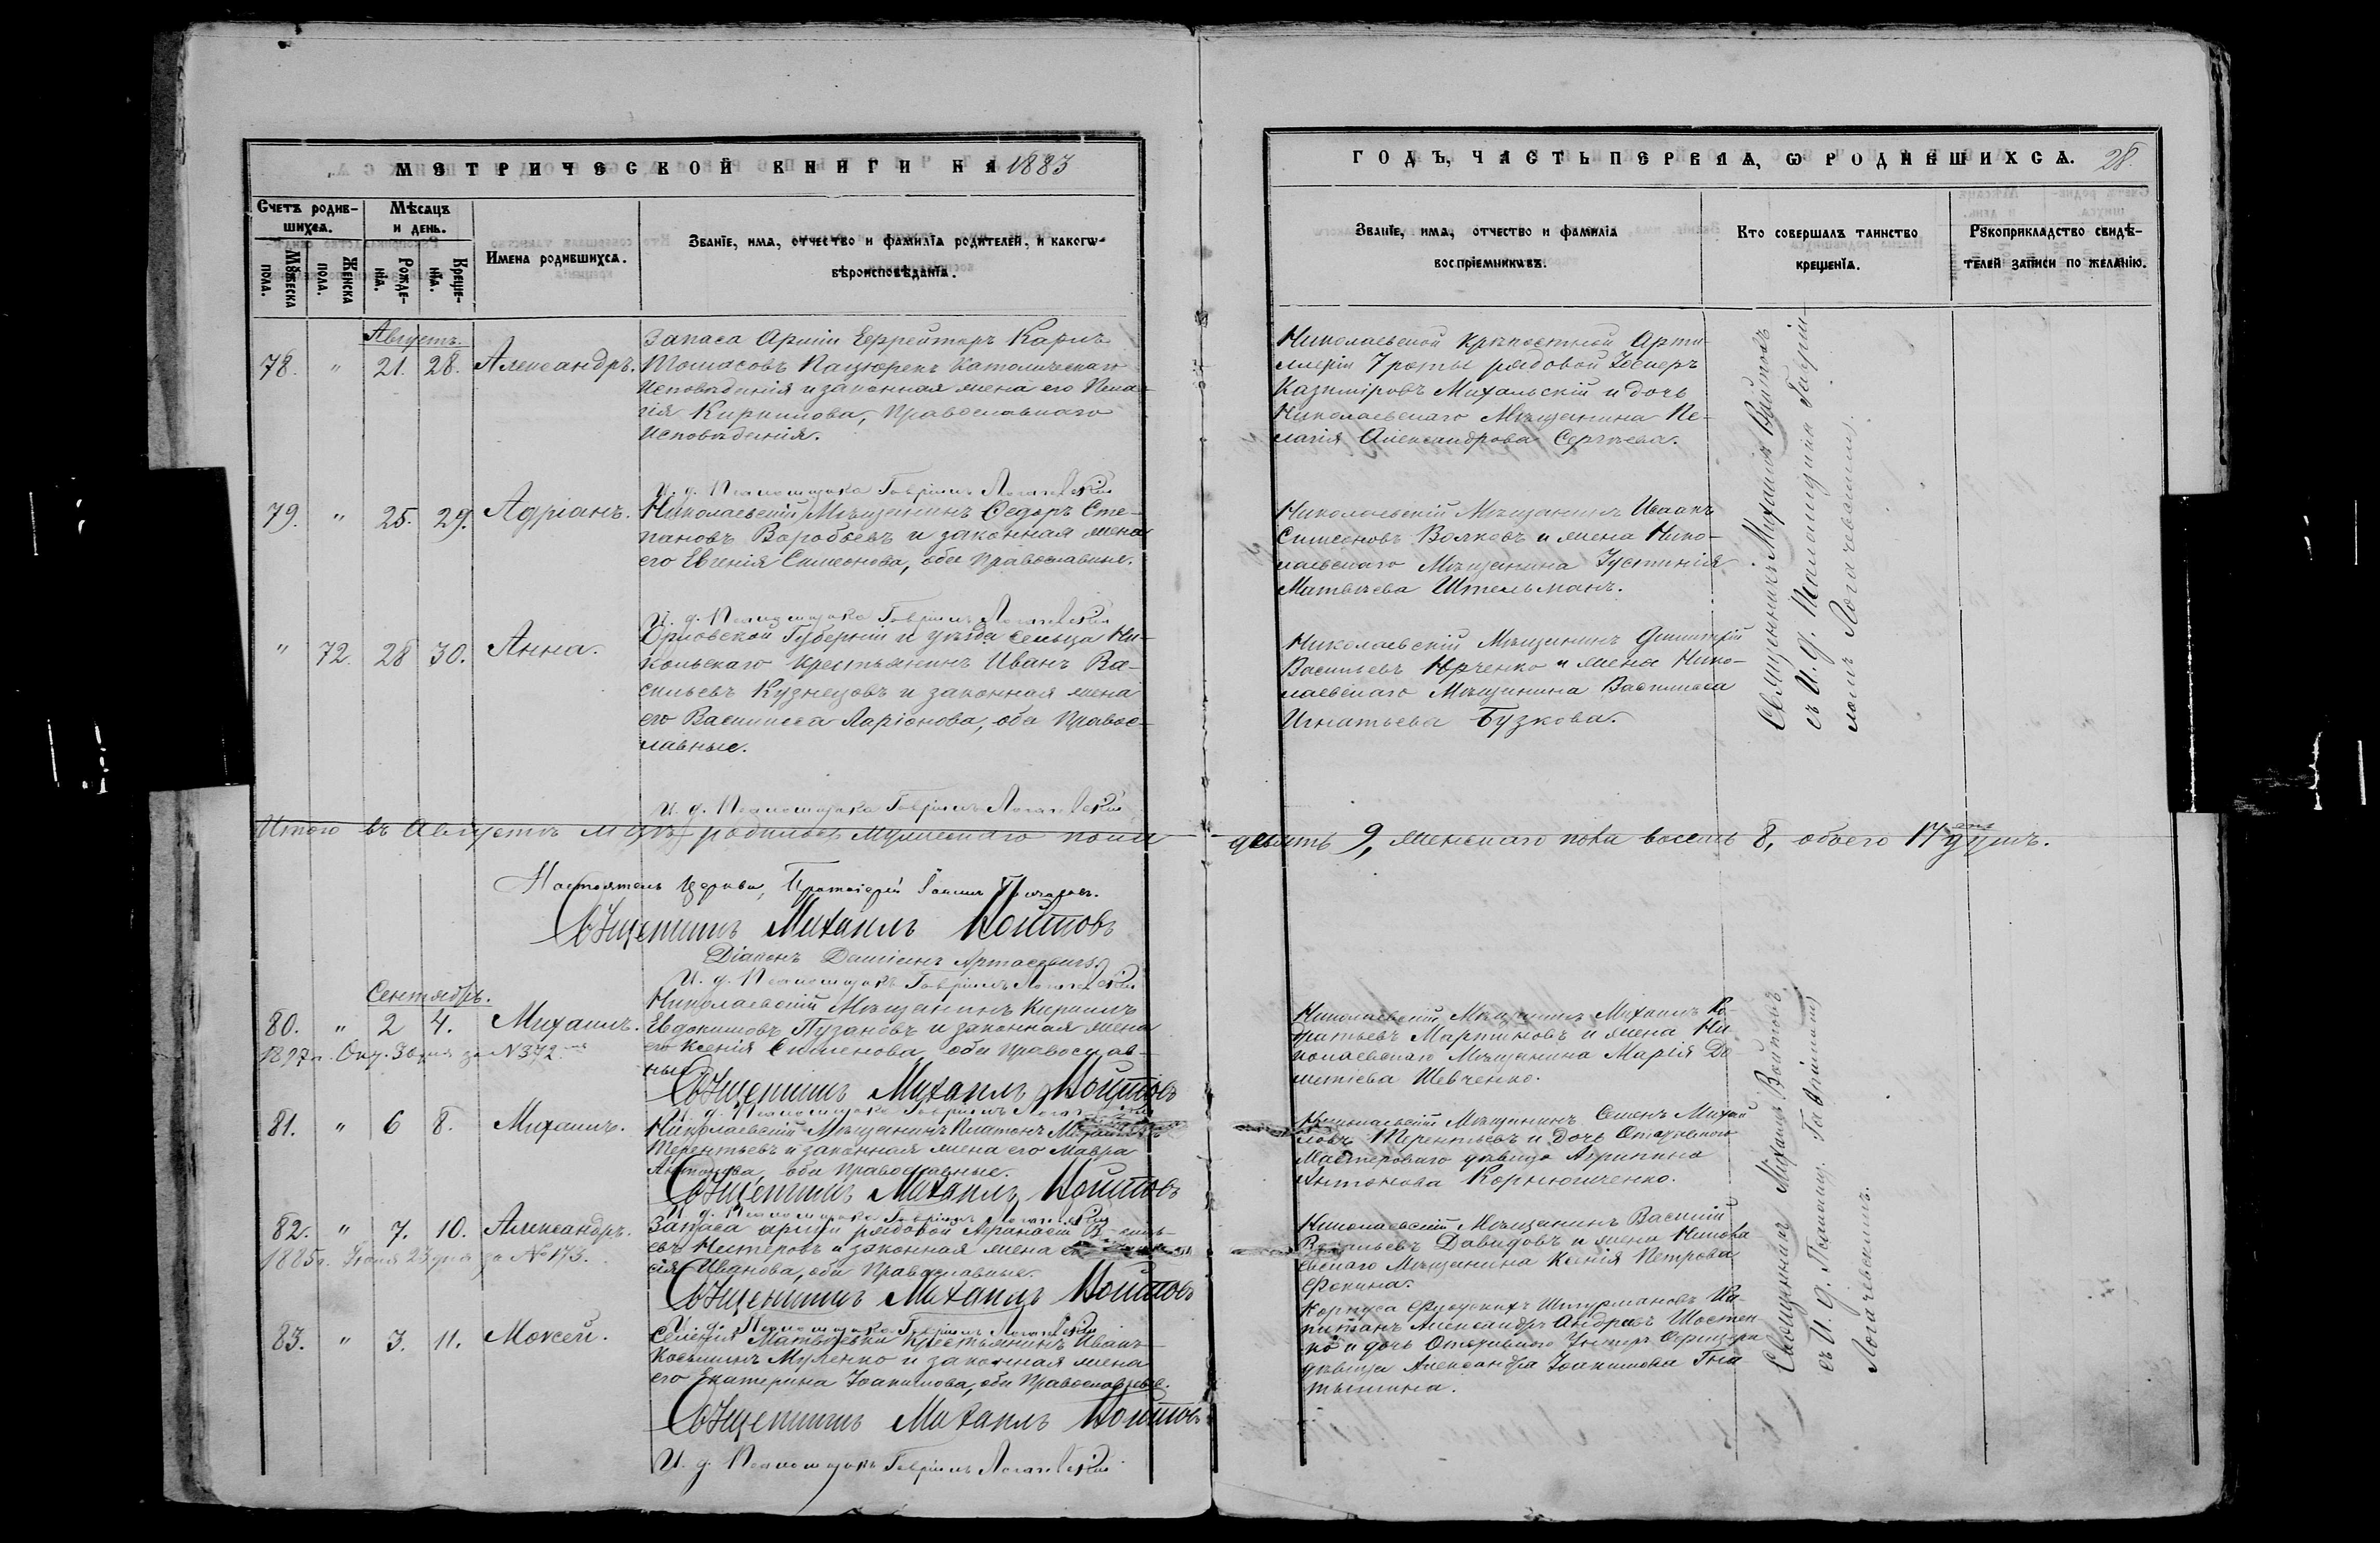 МЕТРИЧЕСКОЙ КНИГИ НА 1883
Счетъ родив-
шихся.
Мѣсяцъ
и день.
Мужеска
пола.
Женска
пола.
Рожде-
нія.
Креще-
нія.
Имена родившихся.
Званіе, имя, отчество и фамилія родителей, и какогѡ
вѣроисповѣданія.
Августъ
78. " 21. 28. Александръ.
Запаса Арміи Ефрейторъ Карлъ
Томасовъ Пацюрекъ Католическаго
Исповѣданія и законная жена его Пела-
гія Кириллова, Православнаго
Исповѣданія.
И. д. Псаломщика Гавріилъ Логачевскій
79. " 25. 29. Адріанъ.
Николаевскій Мѣщанинъ Ѳедоръ Сте-
пановъ Воробьевъ и законная жена
его Евгенія Симеонова, оба Православные.
И. д. Псаломщика Гавріилъ Логачевскій
" 72. 28 30. Анна.
Орловской Губерніи и уѣзда сельца Ни-
кольскаго Крестьянинъ Иванъ Ва-
сильевъ Кузнецовъ и законная жена
его Василисса Ларіонова, оба Правос-
лавные.
И. д. Псаломщика Гавріилъ Логачевскій
Итого въ Августѣ родилось мужескаго пола
Настоятель Церкви, Протоіерей
Священникъ Михаилъ Войтовъ
Діаконъ Даміанъ
И. д. Псаломщика Гавріилъ Логачевскій
Сентябрь.
80. " 2 4. Михаилъ.
1897 г. за № 372
Николаевскій Мѣщанинъ Кириллъ
Евдокимовъ Пузановъ и законная жена
его Ксенія Симеонова оба православ-
ные.
Священникъ Михаилъ Войтовъ
И. д. Псаломщика Гавріилъ Логачевскій
81. " 6 8. Михаилъ.
Николаевскій Мѣщанинъ Платонъ
Терентьевъ и законная жена его Мавра
Антонова, оба Православные.
Священникъ Михаилъ Войтовъ
И. д. Псаломщика Гавріилъ Логачевскій
82. " 7. 10. Александръ.
1885 г. Іюня 23 дня за № 173.
Запаса арміи рядовой Аѳанасій Василь-
евъ Нестеровъ и законная жена
сія Иванова, оба Православные.
Священникъ Михаилъ Войтовъ
И. д. Псаломщика Гавріилъ Логачевскій
83. " 3. 11. Моѵсей.
Селенія Матвѣевки Крестьянинъ Иванъ
Косьминъ Муленко и законная жена
его Екатерина Іоакимова, оба Православные.
Священникъ Михаилъ Войтовъ
И. д. Псаломщика Гавріилъ Логачевскій
ГОДЪ, ЧАСТЬ ПЕРВАЯ, Ѡ РОДИВШИХСЯ. 28.
Званіе, имя, отчество и фамилія
воспріемниковъ.
Кто совершалъ таинство
крещенія.
Рукоприкладство свидѣ-
телей записи по желанію.
Николаевской крѣпостной Арти-
ллеріи 7 роты рядовой
Казиміровъ Михальскій и дочь
Николаевскаго Мѣщанина Пе-
лагія Александрова Сергѣева.
Николаевскій Мѣщанинъ Иванъ
Симеоновъ Волковъ и жена Нико-
лаевскаго Мѣщанина Іустинія
Матвѣева Штельманъ.
Николаевскій Мѣщанинъ Димитрій
Васильевъ Юрченко и жена Нико-
лаевскаго Мѣщанина Василисса
Игнатьева Бузкова.
Священникъ Михаилъ Войтовъ
съ И. д. Псаломщика Гавріи-
ломъ Логачевскимъ.
девять 9, женскаго пола восемь 8, обоего 17 душъ.
Николаевскій Мѣщанинъ Михаилъ Ко-
дратьевъ Мартыновъ и жена Ни-
колаевскаго Мѣщанина Марія До-
метіева Шевченко.
Николаевскій Мѣщанинъ Семенъ Михай
ловъ Терентьевъ и дочь Отставного
Мастероваго дѣвица Агрипина
Антонова Корнюшченко.
Николаевскій Мѣщанинъ Василій
Васильевъ Давидовъ и жена Никола
евскаго Мѣщанина Ксенія Петрова
Фокина.
Корпуса Флотскихъ Штурмановъ Ка
питанъ Александръ Шостен
ко и дочь Отставного Унтеръ Офицера
дѣвица Александра Іоакимова Гна
тышина.
Священникъ Михаилъ Войтовъ
съ И. д. Псаломщ. Гавріиломъ
Логачевскимъ.